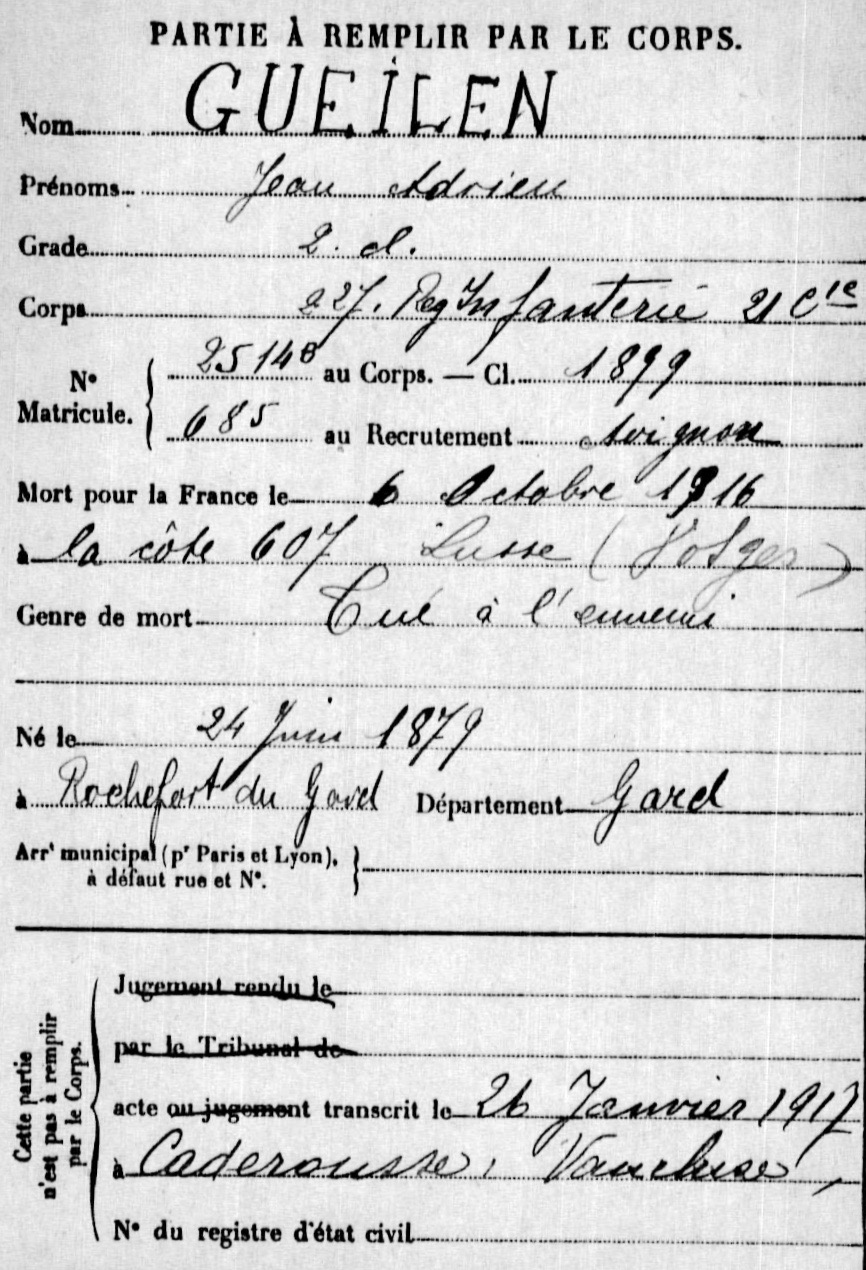 PARTIE À REMPLIR PAR LE CORPS.
Nom GUEILEN
Prénoms Jean Adrien
Grade 2. cl.
Corps 227. Reg Infanterie 21 Cie
N° Matricule. { 25148 au Corps. — Cl. 1899
685 au Recrutement Avignon
Mort pour la France le 6 Octobre 1916
à la côte 607 Lusse (Vosges)
Genre de mort Tué à l'ennemi
Né le 24 Juin 1879
à Rochefort du Gard Département Gard
Arrt municipal (pr Paris et Lyon), à défaut rue et N°. }
Cette partie n'est pas à remplir par le Corps.
Jugement rendu le
par le Tribunal de
acte ou jugement transcrit le 26 Janvier 1917
à Caderousse, Vaucluse,
N° du registre d'état civil